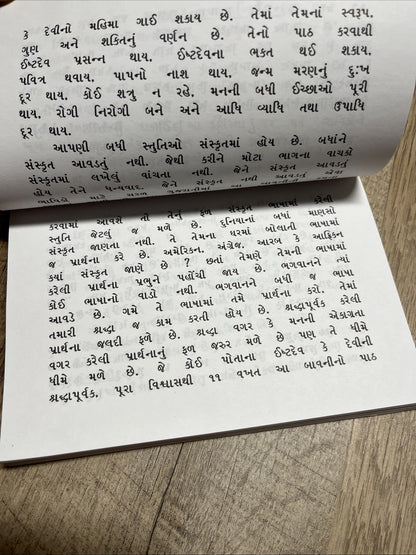 કે દેવીનો મહિમા ગાઈ શકાય છે. તેમાં તેમનાં સ્વરૂપ,
ગુણ અને શક્તિનું વર્ણન છે. તેનો પાઠ કરવાથી
ઈષ્ટદેવ પ્રસન્ન થાય, ઈષ્ટદેવના ભક્ત થઈ શકાય,
પવિત્ર થવાય, પાપનો નાશ થાય, જન્મ મરણનું દુઃખ
દૂર થાય, કોઈ શત્રુ ન રહે, મનની બધી ઈચ્છાઓ પૂરી
થાય, રોગી નિરોગી બને અને આધિ વ્યાધિ તથા ઉપાધિ
દૂર થાય.
આપણી બધી સ્તુતિઓ સંસ્કૃતમાં હોય છે. બધાંને
સંસ્કૃત આવડતું નથી. જેથી કરીને મોટા ભાગના વાચકો
સંસ્કૃતમાં લખેલું વાંચતા નથી. જેને સંસ્કૃત આવડતું
હોય તેને ધન્યવાદ. જેને સંસ્કૃત નથી આવડતું એવા
કરવામાં આવશે તો તેનું ફળ સંસ્કૃત ભાષામાં કરેલી
સ્તુતિ જેટલું જ મળે છે. દુનિયાનાં બધાં માણસો
સંસ્કૃત જાણતા નથી. તે તેમના ઘરમાં બોલાતી ભાષામાં
જ પ્રાર્થના કરે છે. અમેરિકન, અંગ્રેજ, આરબ કે આફ્રિકન
ક્યાં સંસ્કૃત જાણે છે ? છતાં તેમણે તેમની ભાષામાં
કરેલી પ્રાર્થના પ્રભુને પહોંચી જાય છે. ભગવાનને ત્યાં
કોઈ ભાષાનો વાડો નથી. ભગવાનને બધી જ ભાષા
આવડે છે. ગમે તે ભાષામાં તમે પ્રાર્થના કરો. તેમાં
તમારી શ્રદ્ધા જ કામ કરતી હોય છે. શ્રદ્ધાપૂર્વક કરેલી
પ્રાર્થના જલદી ફળે છે. શ્રદ્ધા વગર કે મનની એકાગ્રતા
વગર કરેલી પ્રાર્થનાનું ફળ જરુર મળે છે પણ તે ધીમે
ધીમે મળે છે. જે કોઈ પોતાના ઈષ્ટદેવ કે દેવીની
શ્રદ્ધાપૂર્વક, પૂરા વિશ્વાસથી ૧૧ વખત આ બાવનીનો પાઠ